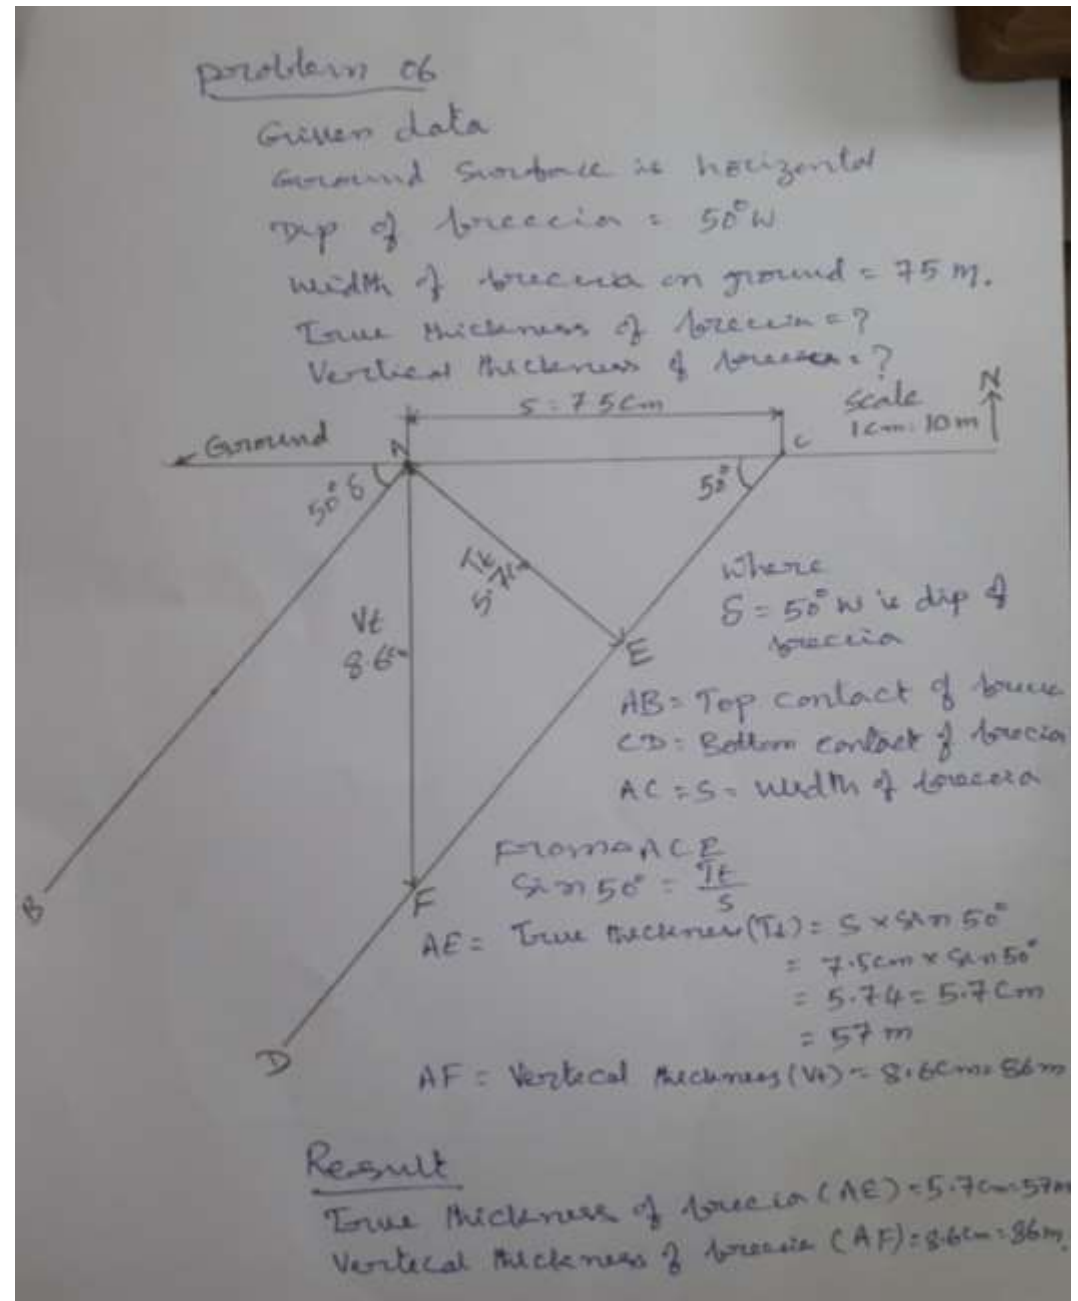 problem 06
Given data
Ground Surface is horizontal
Dip of breccia = 50°W
Width of breccia on ground = 75 m.
True thickness of breccia = ?
Vertical thickness of breccia = ?
S = 7.5 cm
Scale
1 cm = 10 m
N
Ground
A
C
50° δ
50°
Tt
5.7cm
Vt
8.6cm
E
B
F
D
where
δ = 50° W is dip of
breccia
AB = Top contact of
CD = Bottom contact of breccia
AC = S = width of breccia
From ACE
Sin 50° = Tt
S
AE = True thickness (Tt) = S x Sin 50°
= 7.5cm x Sin 50°
= 5.74 = 5.7 Cm
= 57 m
AF = Vertical thickness (Vt) = 8.6cm = 86m
Result
True thickness of breccia (AE) = 5.7cm = 57m
Vertical thickness of breccia (AF) = 8.6cm = 86m.